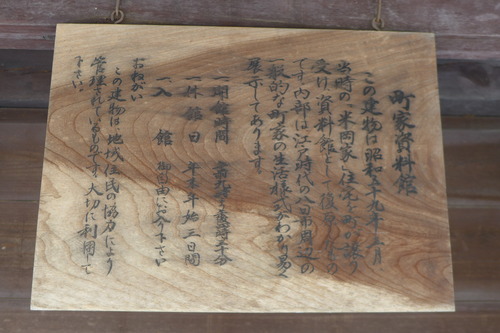 町家資料館
この建物は昭和五十九年三月
当時の、米岡家の住宅を町が譲り
受け、資料館として復原したもの
です。内部は江戸時代の八日市周辺の
一般的な町家の生活様式がわかり易く
展示してあります
一、開館時間 午前九時〜午後四時三十分
一、休館日 年末年始三日間
一、入館 御自由にお入り下さい
おねがい
この建物は地域住民の協力により
管理されているものです。大切に利用して
下さい